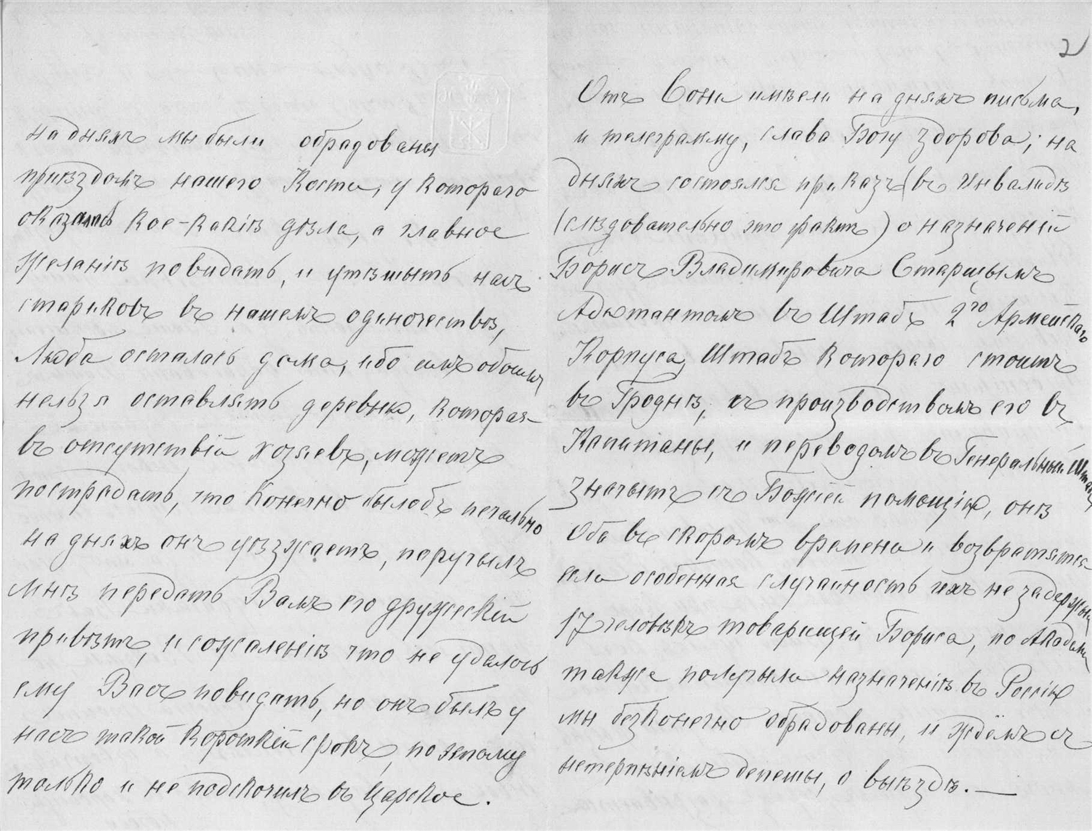 на дняхъ мы были обрадованы
пріѣздомъ нашего Кости, у котораго
оказались кое-какія дѣла, а главное
желаніѣ повидать, и утѣшыть насъ
стариковъ въ нашемъ одиночествѣ,
Люба осталась дома, ибо имъ обоимъ
нельзя оставлять деревню, которая
въ отсутствій хозяевъ, можетъ
пострадать, что конечно былобъ печально
на дняхъ онъ уѣзжаетъ, поручылъ
мнѣ передать Вамъ его дружескій
привѣтъ, и сожаленіѣ что не удалось
ему Васъ повидать, но онъ былъ у
насъ такой короткій срокъ, поэтому
только и не подскочилъ въ Царское.
2
Отъ Сони имѣли на дняхъ письма,
и телеграмму, слава Богу здорова; на
дняхъ состоялся приказъ (въ Инвалидѣ
(слѣдовательно это фактъ) о назначеній
Борисъ Владимировича Старшымъ
Адютантомъ въ Штабъ 2го Армейскаго
Корпуса, Штабъ котораго стоитъ
въ Гроднѣ, съ производствомъ его въ
Капитаны, и переводомъ въ Генеральный Штабъ
значытъ съ Божіей помощію, онѣ
оба въ скоромъ времени и возвратятся
если особенная случайность ихъ не задержитъ
17 человѣкъ товарищей Бориса, по Академіи
также получыли назначеніѣ въ Россію
мы безконечно обрадованы, и ждёмъ съ
нетерпѣніемъ депешы, о выѣздѣ. —